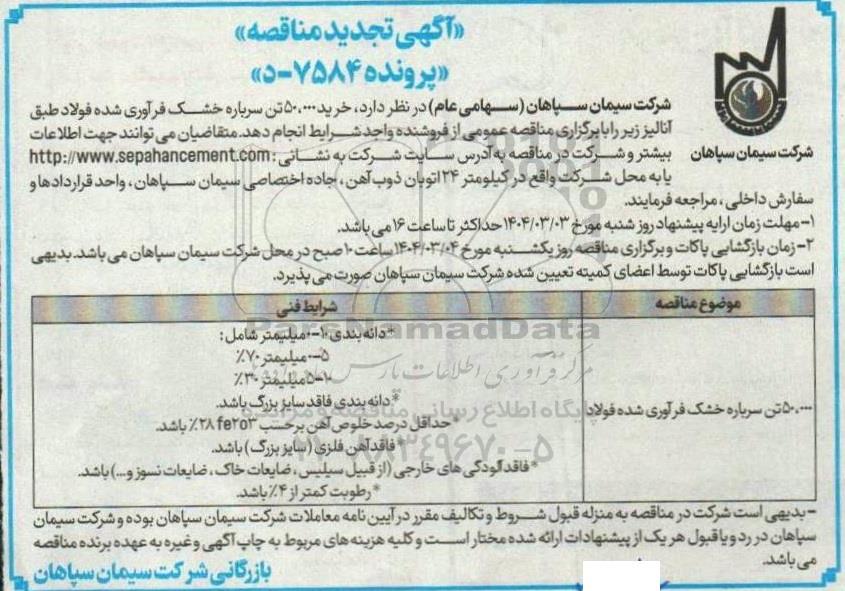 «آگهی تجدید مناقصه»
«پرونده ۷۵۸۴-د»
شرکت سیمان سپاهان
شرکت سیمان سپاهان (سهامی عام) در نظر دارد، خرید ۵۰،۰۰۰ تن سرباره خشک فرآوری شده فولاد طبق
آنالیز زیر را با برگزاری مناقصه عمومی از فروشنده واجد شرایط انجام دهد. متقاضیان می توانند جهت اطلاعات
بیشتر و شرکت در مناقصه به آدرس سایت شرکت به نشانی: http://www.sepahancement.com
یا به محل شرکت واقع در کیلومتر ۲۴ اتوبان ذوب آهن، جاده اختصاصی سیمان سپاهان، واحد قراردادها و
سفارش داخلی، مراجعه فرمایند.
۱- مهلت زمان ارایه پیشنهاد روز شنبه مورخ ۱۴۰۴/۰۳/۰۳ حداکثر تا ساعت ۱۶ می باشد.
۲- زمان بازگشایی پاکات و برگزاری مناقصه روز یکشنبه مورخ ۱۴۰۴/۰۳/۰۴ ساعت ۱۰ صبح در محل شرکت سیمان سپاهان می باشد. بدیهی
است بازگشایی پاکات توسط اعضای کمیته تعیین شده شرکت سیمان سپاهان صورت می پذیرد.
موضوع مناقصه
شرایط فنی
۵۰،۰۰۰ تن سرباره خشک فرآوری شده فولاد
*دانه بندی ۱۰-۰ میلیمتر شامل:
۵-۰ میلیمتر ۷۰٪
۱۰-۵ میلیمتر ۳۰٪
*دانه بندی فاقد سایز بزرگ باشد.
*حداقل درصد خلوص آهن برحسب fe2o3 ۲۸٪ باشد.
*فاقد آهن فلزی (سایز بزرگ) باشد.
*فاقد آلودگی های خارجی (از قبیل سیلیس، ضایعات خاک، ضایعات نسوز و...) باشد.
*رطوبت کمتر از ۴٪ باشد.
- بدیهی است شرکت در مناقصه به منزله قبول شروط و تکالیف مقرر در آیین نامه معاملات شرکت سیمان سپاهان بوده و شرکت سیمان
سپاهان در رد و یا قبول هر یک از پیشنهادات ارائه شده مختار است و کلیه هزینه های مربوط به چاپ آگهی و غیره به عهده برنده مناقصه
می باشد.
بازرگانی شرکت سیمان سپاهان
ParsNamadData
مرکز فرآوری اطلاعات پارس نماد داده ها
پایگاه اطلاع رسانی مناقصه و مزایده
۰۲۱-۸۸۳۴۹۶۷۰-۵